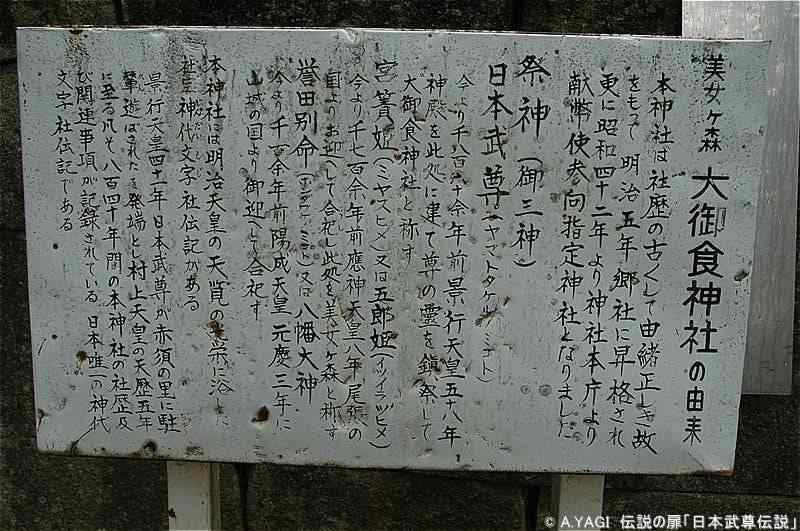 美女ヶ森 大御食神社の由来
本神社は社歴の古くして由緒正しき故
をもって明治五年郷社に昇格され
更に昭和四十二年より神社本庁より
献幣使参向指定神社となりました
祭神(御三神)
日本武尊(ヤマトタケルノミコト)
今より千八百六十余年前景行天皇五十八年
神殿を此処に建て尊の霊を鎮祭して
大御食神社と称す
宮簀姫(ミヤスヒメ)又は五郎姫(イツイラツヒメ)
今より千七百余年前應神天皇八年尾張の
国よりお迎へして合祀し此処を美女ヶ森と称す
誉田別命(ホンダワケノミコト)又は八幡大神
今より千百余年前陽成天皇元慶三年に
山城の国より御迎へして合祀す
本神社には明治天皇の天覧の光栄に浴した
社宝神代文字社伝記がある
景行天皇四十一年日本武尊が赤須の里に駐
輦遊ばされたを発端とし村上天皇の天歴五年
に至る凡そ八百四十年間の本神社の社歴及
び関連事項が記録されている 日本唯一の神代
文字社伝記である
© A.YAGI 伝説の扉「日本武尊伝説」